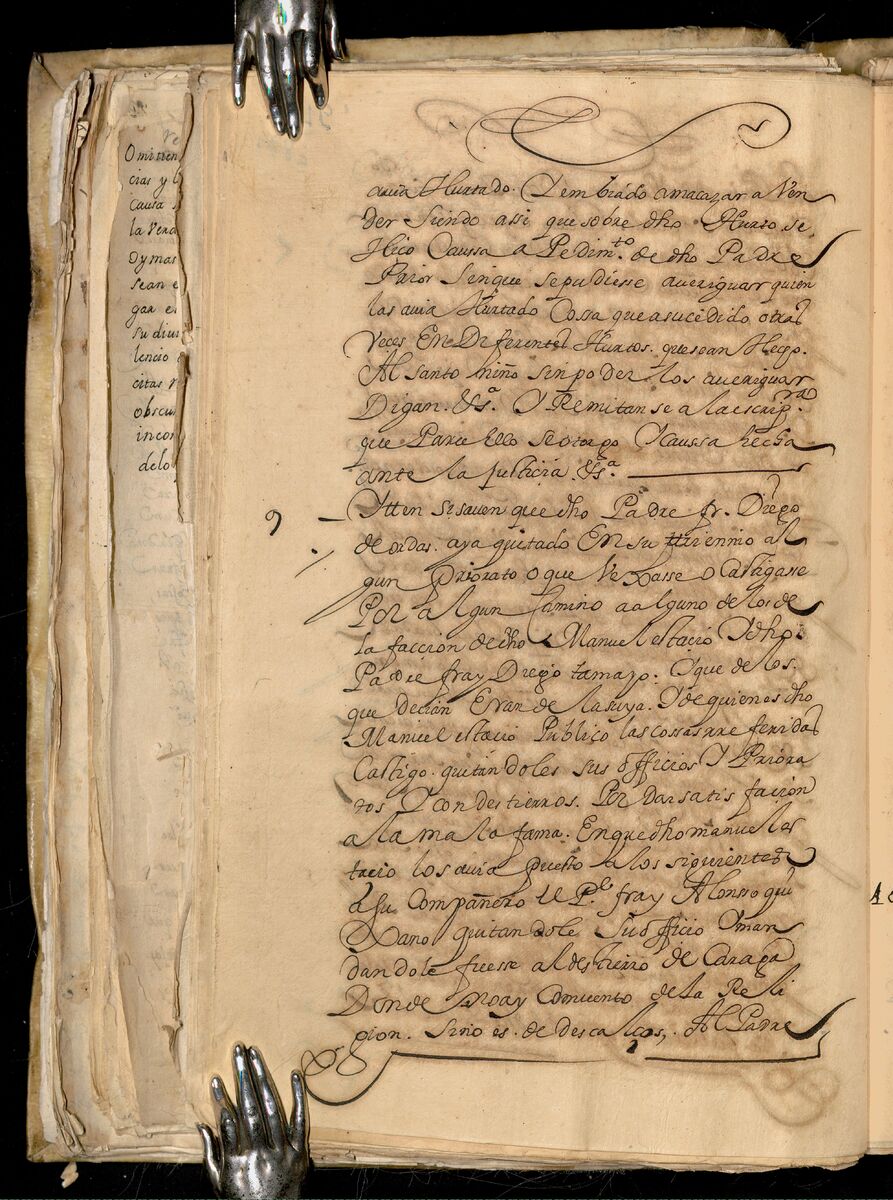 Omitien
cias y l
Causa
la Verd
Dymas
sean e
gar e
su diui
lencio
citas
obscu
incon
delo
auia Hurtado. Y embiado amacazar a Ven
der Siendo assi que sobre dho Hurto se
Hiço Caussa a Pedim.to de dho Padre
Prior Sinque sepudiesse aueriguar quien
las auia Hurtado Cossa que asucedido otras
Veces En Diferentes Hurtos. quesean Hecho.
Al Santo niño sinpoder los aueriguar
Digan. &s.a Y Remitan se a la escrip.ra
que Para Ello Seotorgo Y Caussa hecha
ante la justicia. &s.a
9 Ytten Sisauen que dho Padre fr. Diego
de ordas. aya quitado En su trriennio al
gun Priorato o que Vexasse o Castigasse
Por algun Camino a alguno de los de
la facción de dho Manuel estacio Y dho.
Padre fray Diego tamayo. Y que de los.
que decian Eran de la suya. Y de quienes dho
Manuel estacio Publico las cossas rreferidas
Castigo. quitandoles sus officios Y Priora
tos Y con destierros. Por dar satisfacion
a la mala fama. En que dho manuel es
tacio los auia puesto a los siguientes
a su Compañero el P.e fray Alonsso qui
Xano quitandole Su officio Y man
dandole fuesse al destierro de Caraga
Donde no ay Comuento de la Reli
gion. Sino es. de descalços,. Al Padre